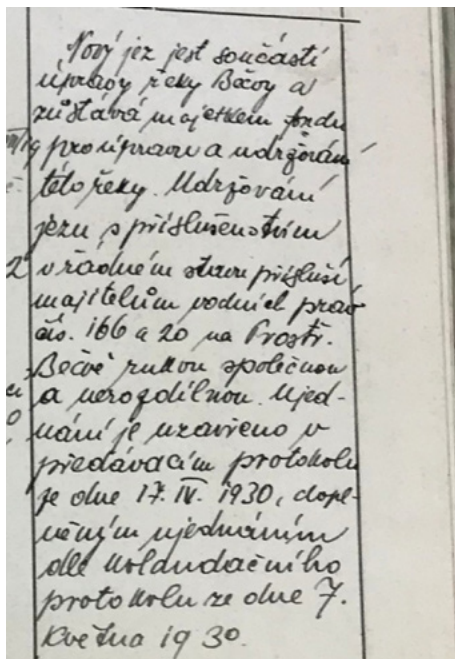 Nový jez jest součástí
úpravy řeky Bečvy a
zůstává majetkem fondu
pro úpravu a udržování
této řeky. Udržování
jezu s příslušenstvím
v řádném stavu přísluší
majitelům vodních prav
čís. 166 a 20 na Prostř.
Bečvě rukou společnou
a nerozdílnou. Ujed-
nání je uzavřeno v
předávacím protokolu
ze dne 17. IV. 1930, dopl-
něným ujednáním
dle kolaudačního
protokolu ze dne 7.
Května 1930.